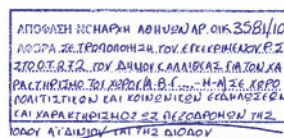 ΑΠΟΦΑΣΗ ΝΟΜΑΡΧΗ ΑΘΗΝΩΝ ΑΡ. ΟΙΚ 3581/10
ΑΦΟΡΑ ΣΕ ΤΡΟΠΟΠΟΙΗΣΗ ΤΟΥ ΕΓΚΕΚΡΙΜΕΝΟΥ Ρ.Σ
ΣΤΟ Ο.Τ. ΤΟΥ ΔΗΜΟΥ ΚΑΛΛΙΘΕΑΣ ΓΙΑ ΤΟΝ ΧΑ
ΡΑΚΤΗΡΙΣΜΟ ΤΟΥ ΧΩΡΟΥ (Α.Β.Γ....-Η-Α) ΣΕ ΧΩΡΟ
ΠΟΛΙΤΙΣΤΙΚΩΝ ΚΑΙ ΚΟΙΝΩΝΙΚΩΝ ΕΚΔΗΛΩΣΕΩΝ
ΚΑΙ ΧΑΡΑΚΤΗΡΙΣΜΟΣ ΩΣ ΠΕΖΟΔΡΟΜΩΝ ΤΗΣ
ΟΔΟΥ ΑΪΔΙΝΙΟΥ ΚΑΙ ΤΗΣ ΔΙΟΔΟΥ